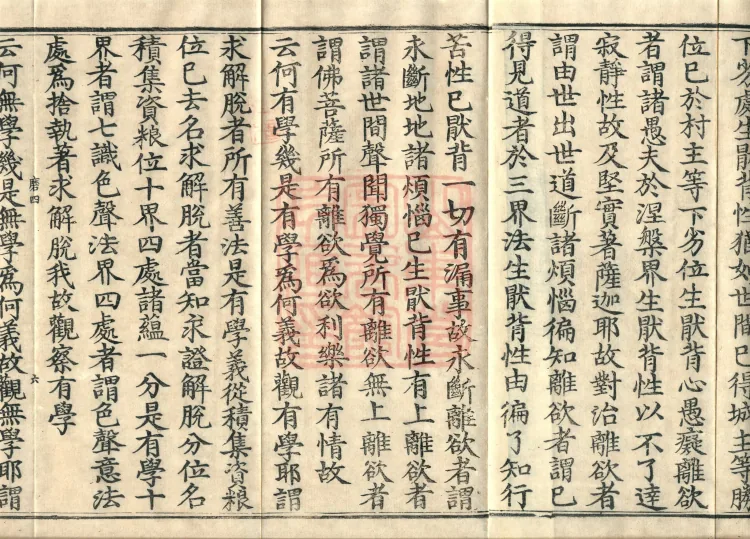 下劣處生猒背性猶如世間已得城主等勝
位已於村主等下劣位生猒背心愚癡離欲
者謂諸愚夫於涅槃界生猒背性以不了達
寂靜性故及堅實著薩迦耶故對治離欲者
謂由世出世道斷諸煩惱徧知離欲者謂已
得見道者於三界法生猒背性由徧了知行
苦性已猒背一切有漏事故永斷離欲者謂
永斷地地諸煩惱已生猒背性有上離欲者
謂諸世間聲聞獨覺所有離欲無上離欲者
謂佛菩薩所有離欲爲欲利樂諸有情故
云何有學幾是有學爲何義故觀有學耶謂
求解脫者所有善法是有學義從積集資粮
位已去名求解脫者當知求證解脫分位名
積集資粮位十界四處諸蘊一分是有學十
界者謂七識色聲法界四處者謂色聲意法
處爲捨執著求解脫我故觀察有學
磨四
六
云何無學幾是無學爲何義故觀無學耶謂